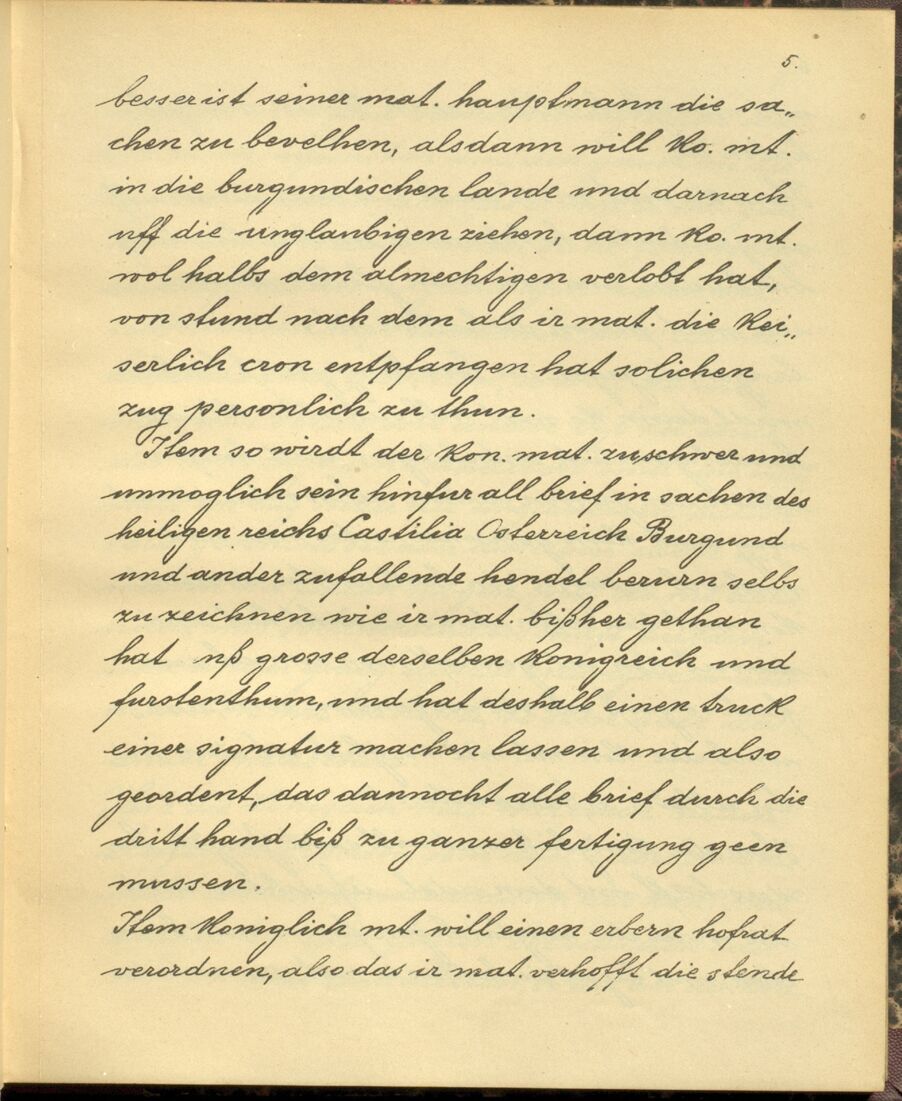 5.
besser ist seiner mat. hauptmann die sa„
chen zu bevelhen, alsdann will ko. mt.
in die burgundischen lande und darnach
uff die unglaubigen ziehen, dann ko. mt.
wol halbs dem almechtigen verlobt hat,
von stund nach dem als ir mat. die kei„
serlich cron entpfangen hat solichen
zug personlich zu thun.
Item so wirdt der kon. mat. zu schwer und
unmoglich sein hinfur all brief in sachen des
heiligen reichs Castilia Osterreich Burgund
und ander zufallende hendel berurn selbs
zu zeichnen wie ir mat. bißher gethan
hat uß grosse derselben konigreich und
furstenthum, und hat deshalb einen truck
einer signatur machen lassen und also
geordent, das dannocht alle brief durch die
dritt hand biß zu ganzer fertigung geen
mussen.
Item koniglich mt. will einen erbern hofrat
verordnen, also das ir mat. verhofft die stende